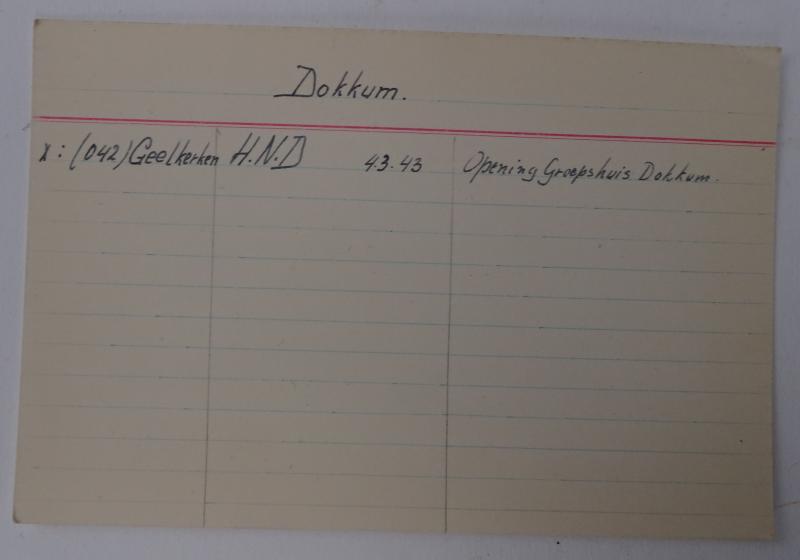 Dokkum.
x: (042) Geelkerken H.N.D 4.3.43 Opening Groepshuis Dokkum.